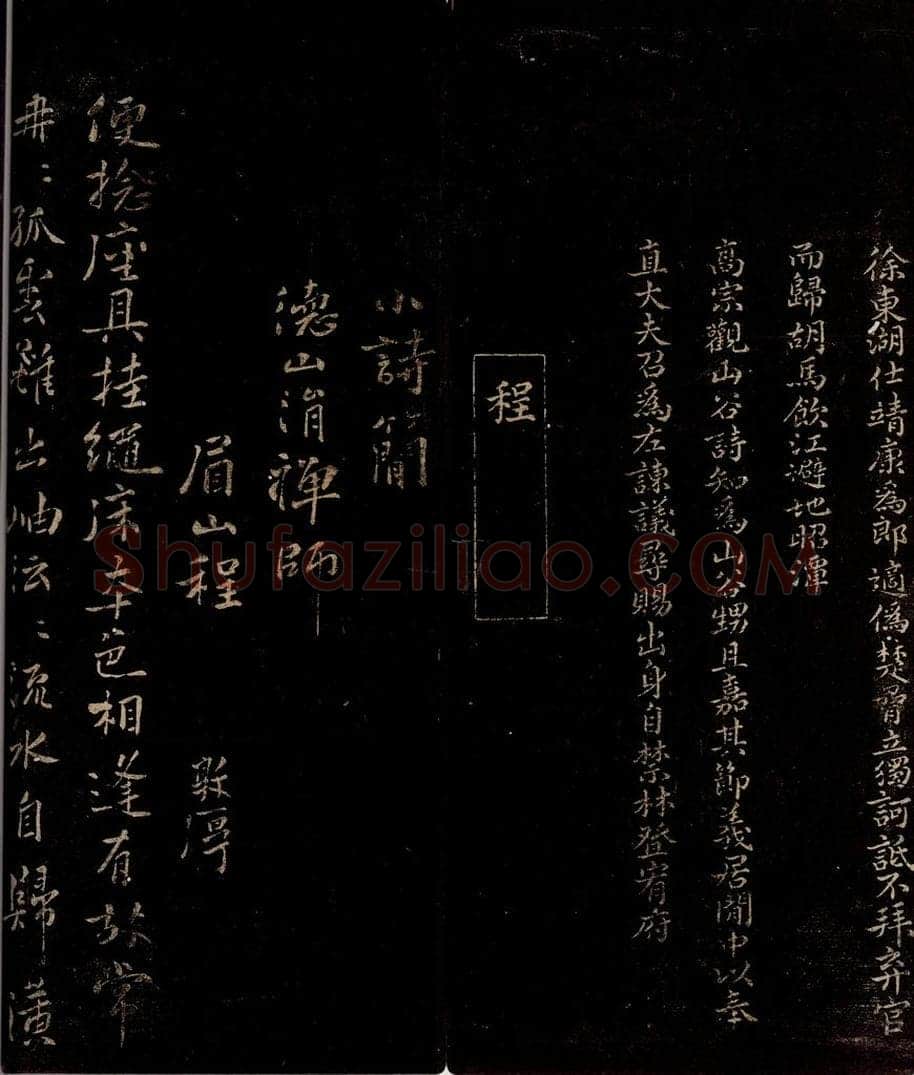 徐東湖仕靖康為郎適偽楚僭立獨訶詆不拜弃官
而歸胡馬飲江避地昭潭
高宗觀山谷詩知為山谷甥且嘉其節義居閒中以奉
直大夫召為左諫議尋賜出身自禁林登宥府
程
小詩簡
德山涓禪師
眉山程
敦厚
便捻座具挂繩床本色相逢有故常
冉〻孤雲雖出岫沄〻流水自歸潢
Shufaziliao.COM